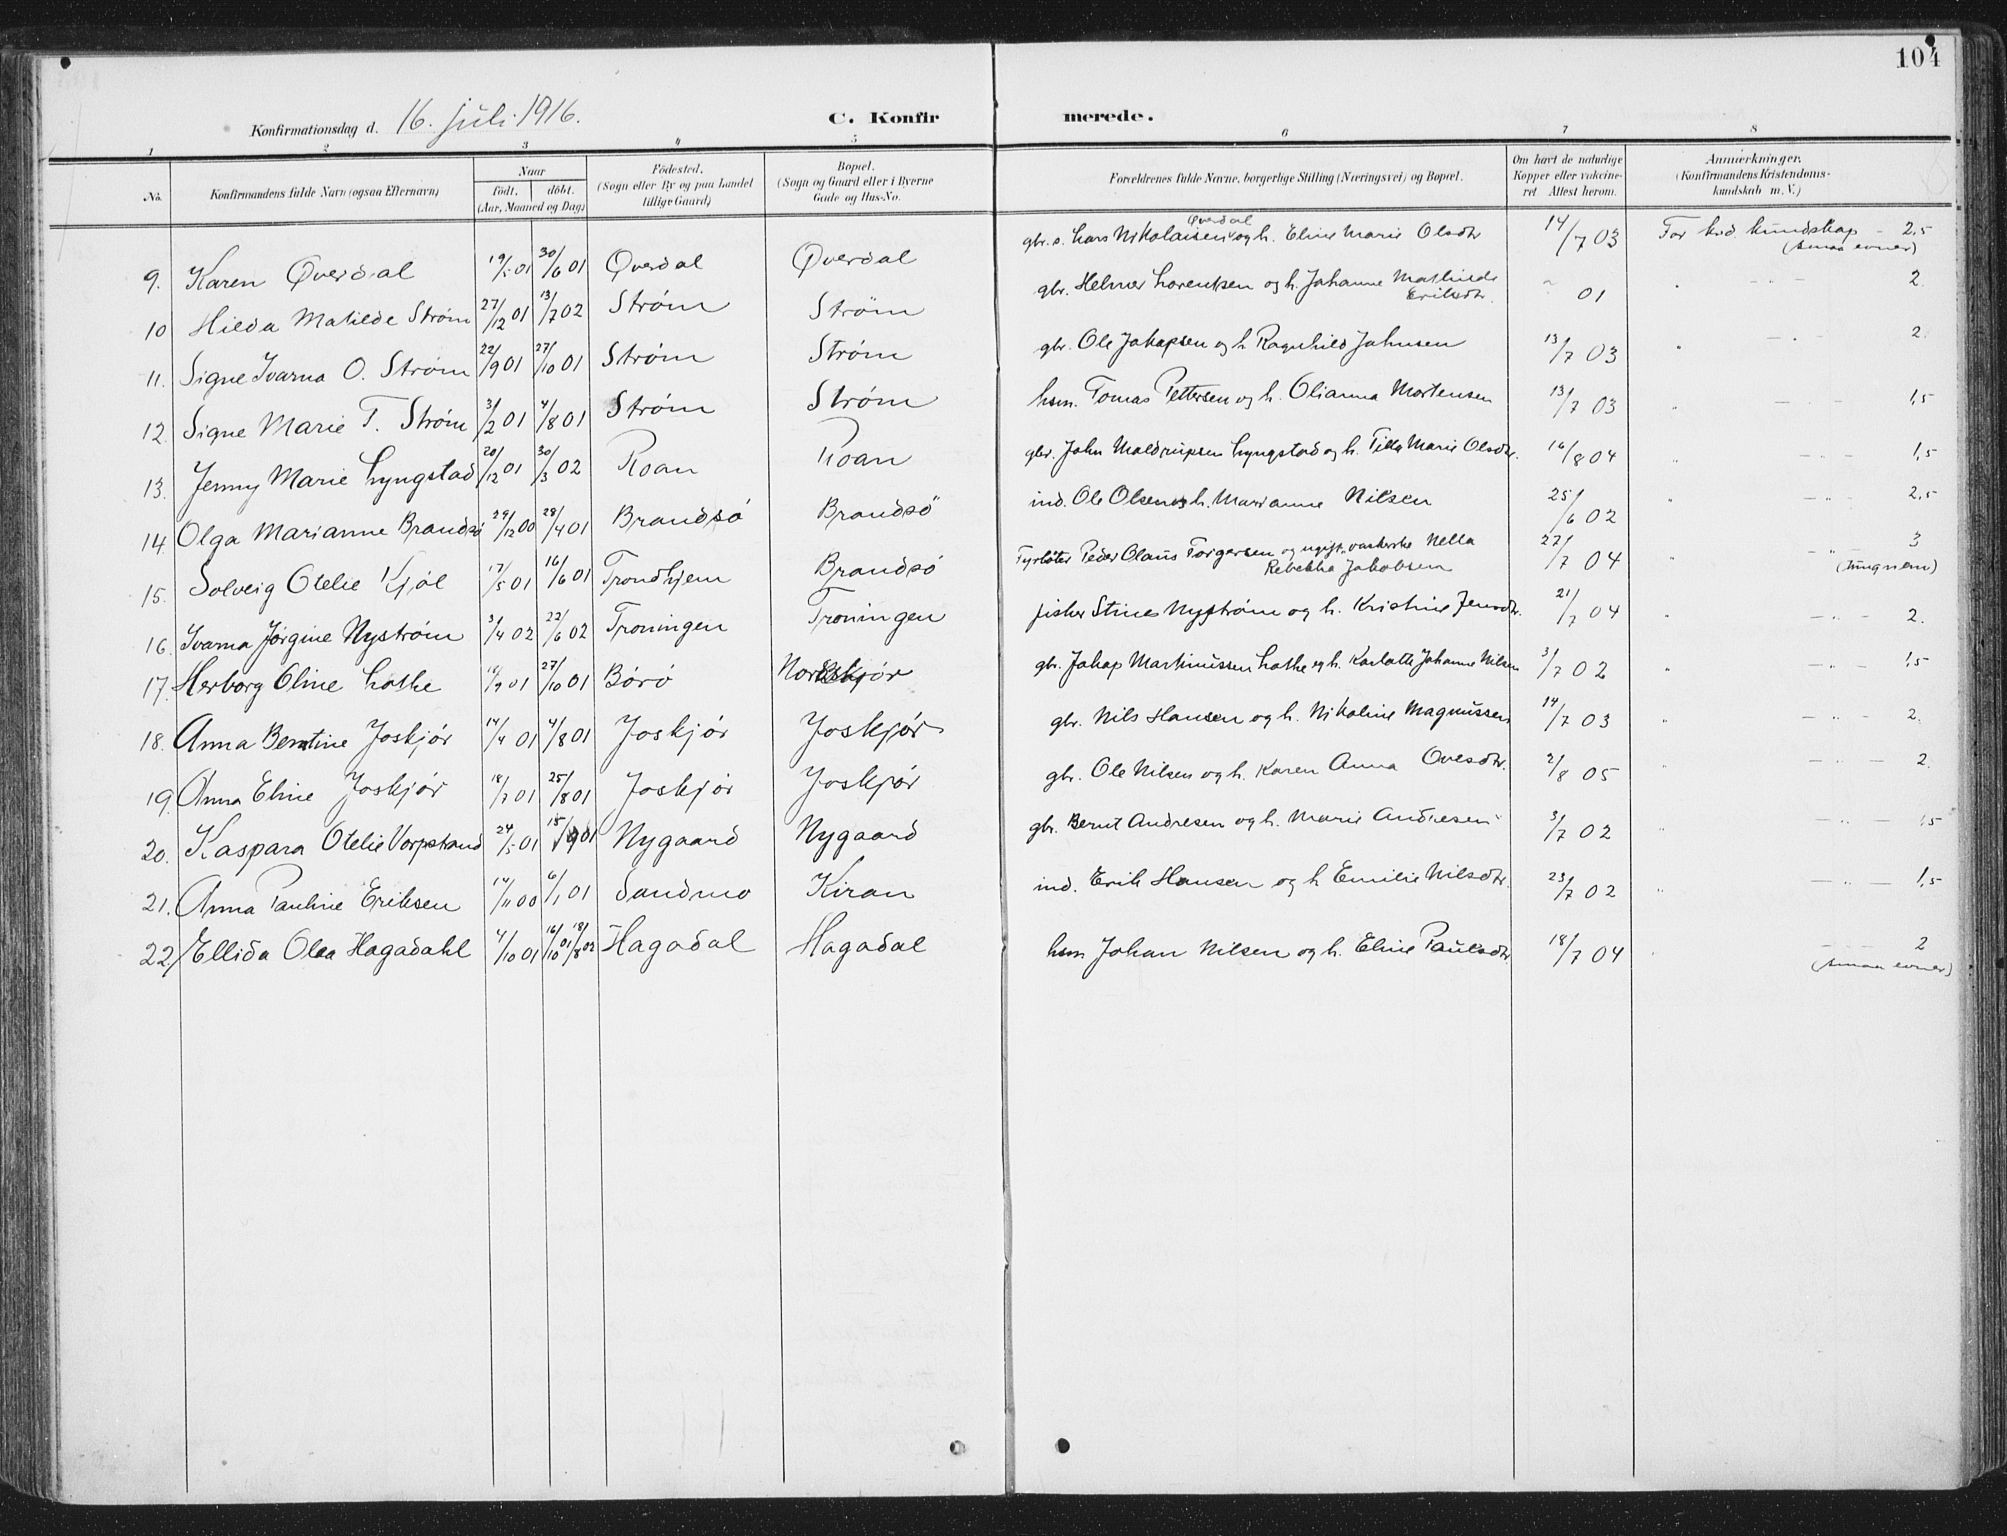 104
Konfirmationsdag d. 16. juli 1916.
C. Konfirmerede.
1 2 3 4 5 6 7 8
No.
Konfirmandens fulde Navn (ogsaa Efternavn)
Naar
födt, döbt.
(Aar, Maaned og Dag)
Födested.
(Sogn eller By og paa Landet
tillige Gaard)
Bopæl.
(Sogn og Gaard eller i Byerne
Gade og Hus-No.
Forældrenes fulde Navne, borgerlige Stilling (Næringsvei) og Bopæl.
Om havt de naturlige
Kopper eller vakcine-
ret Attest herom.
Anmærkninger.
(Konfirmandens Kristendoms-
kundskab m. V.)
9. Karen Överdal 19/5 01 30/6 01 Överdal Överdal gbr. s. Lars Nikolaisen Överdal og h. Eline Marie Olsdtr 14/7 03 For krd kundskap - 2,5 (smaa evner)
10 Hilda Matilde Ström 27/12 01 13/7 02 Ström Ström gbr. Helmer Lorentsen og h. Johanne Mathilde Eriksdtr. " 01 " - " - 2.
11. Signe Ivarna O. Ström 22/9 01 27/10 01 Ström Ström gbr. Ole Jakopsen og h. Ragnhild Johnsen 13/7 03 " - " - 2.
12. Signe Marie T. Ström 3/2 01 4/8 01 Ström Ström hsm. Tomas Pettersen og h. Olianna Mortensen 13/7 03 " - " - 1,5
13. Jenny Marie Lyngstad 20/12 01 30/3 02 Roan Roan gbr. John Moldrupsen Lyngstad og h. Marie Olsdtr. 16/8 04 " - " - 1,5
14. Olga Marianne Brandsö 29/12 00 28/4 01 Brandsö Brandsö ind. Ole Olsen og h. Marianne Nilsen 25/6 02 - " - 2,5
15. Solveig Otelie Kjöl 17/5 01 16/6 01 Trondhjem Brandsö Fyrböter Peder Olaus Torgersen og ugift vaskerske Nella Rebekka Jakobsen 27/7 04 " - " - 3 (tungnem)
16. Ivarna Jörgine Nyström 3/4 02 22/6 02 Troningen Troningen fisker Stines Nyström og h. Kristine Jensdtr. 21/7 04 " - " - 2.
17. Herborg Oline Lothe 18/9 01 27/10 01 Börö Norskjör gbr. Jakop Martinussen Lothe og h. Karlotte Johanne Nilsen 3/7 02 " - " - 1,5
18. Anna Berntine Joskjör 14/4 01 4/8 01 Joskjör Joskjör gbr. Nils Hansen og h. Nikoline Magnussen 14/7 03 " - " - 2.
19. Anna Eline Joskjör 18/7 01 25/8 01 Joskjör Joskjör gbr. Ole Nilsen og h. Karen Anna Ovesdtr. 2/8 05 " - " - 2.
20. Kaspara Otelie Vorpstrand 24/5 01 15/9 01 Nygaard Nygaard gbr. Bernt Andresen og h. Marie Andresen 3/7 02 " - " - 1,5
21. Anna Pauline Eriksen 14/11 00 6/1 01 Sandmo Kiran ind. Erik Hansen og h Emilie Nilsdtr. 23/7 02 " - " - 1,5
22. Ellida Olea Hagadahl 4/10 01 16/10 01 18/8 02 Hagadal Hagadal hsm Johan Nilsen og h. Eline Paulsdtr. 18/7 04 " - - - 2 (smaa evner)